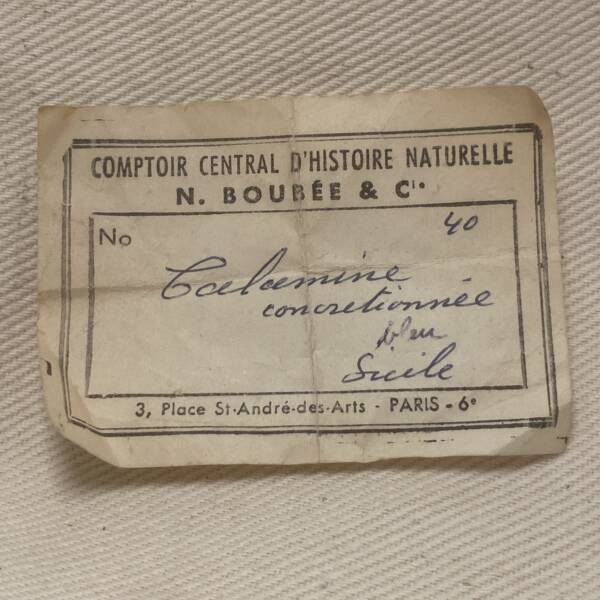 COMPTOIR CENTRAL D'HISTOIRE NATURELLE
N. BOUBÉE & Cie
No 40
Calamine
concretionnée
bleu
Sicile
3, Place St-André-des-Arts - PARIS - 6e